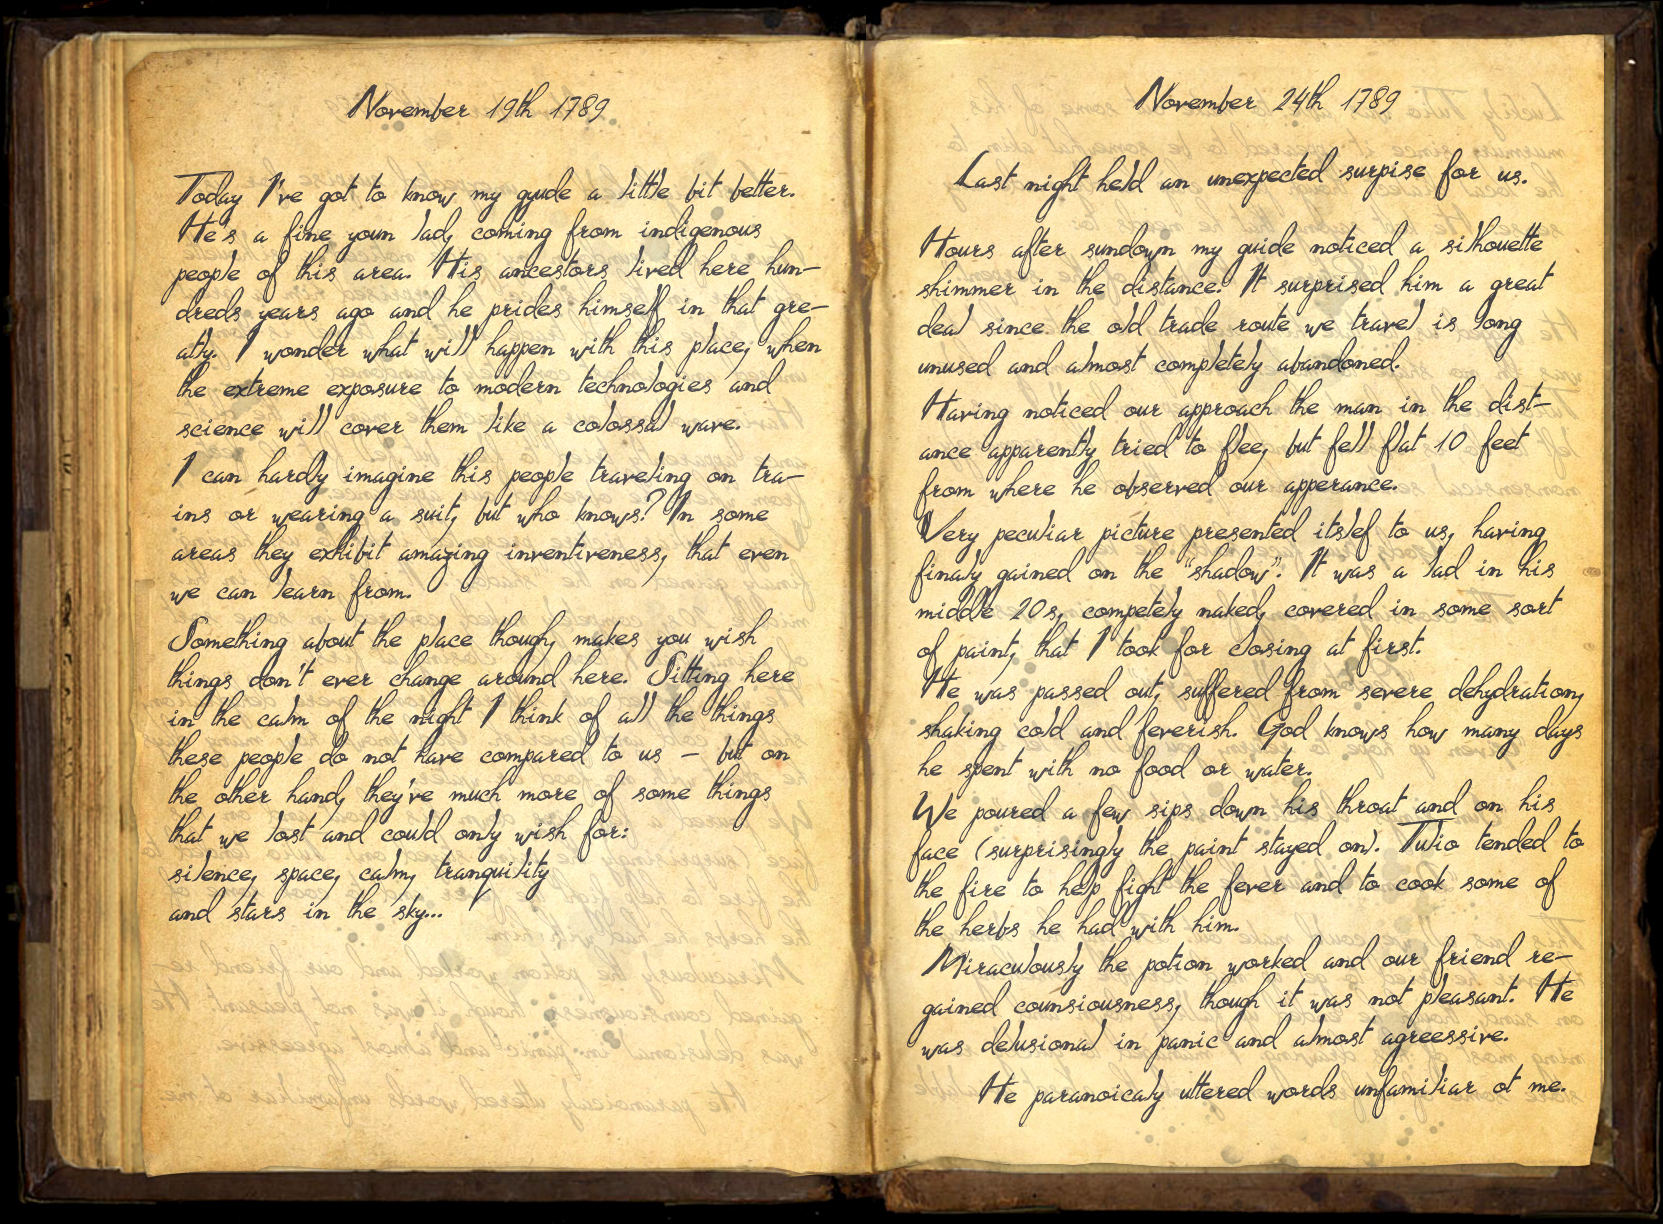 November 19th 1789
Today I've got to know my gyude a little bit better.
He's a fine youn lad, coming from indigenous
people of this area. His ancestors lived here hun-
dreds years ago and he prides himself in that gre-
atly. I wonder what will happen with this place, when
the extreme exposure to modern technologies and
science will cover them like a colossal wave.
I can hardly imagine this people traveling on tra-
ins or wearing a suit, but who knows? In some
areas they exhibit amazing inventiveness, that even
we can learn from.
Something about the place though, makes you wish
things don't ever change around here. Sitting here
in the calm of the night I think of all the things
these people do not have compared to us - but on
the other hand, they've much more of some things
that we lost and could only wish for:
silence, space, calm, tranquility
and stars in the sky...
November 24th 1789
Last night held an unexpected surpise for us.
Hours after sundown my guide noticed a silhouette
shimmer in the distance. It surprised him a great
deal since the old trade route we travel is long
unused and almost completely abandoned.
Having noticed our approach the man in the dist-
ance apparently tried to flee, but fell flat 10 feet
from where he observed our apperance.
Very peculiar picture presented itslef to us, having
finaly gained on the "shadow". It was a lad in his
middle 20s, competely naked, covered in some sort
of paint, that I took for closing at first.
He was passed out, suffered from severe dehydration,
shaking cold and feverish. God knows how many days
he spent with no food or water.
We poured a few sips down his throat and on his
face (surprisingly the paint stayed on). Tulio tended to
the fire to help fight the fever and to cook some of
the herbs he had with him.
Miraculously the potion worked and our friend re-
gained counsiousness, though it was not pleasant. He
was delusional in panic and almost agreessive.
He paranoicaly uttered words unfamiliar ot me.